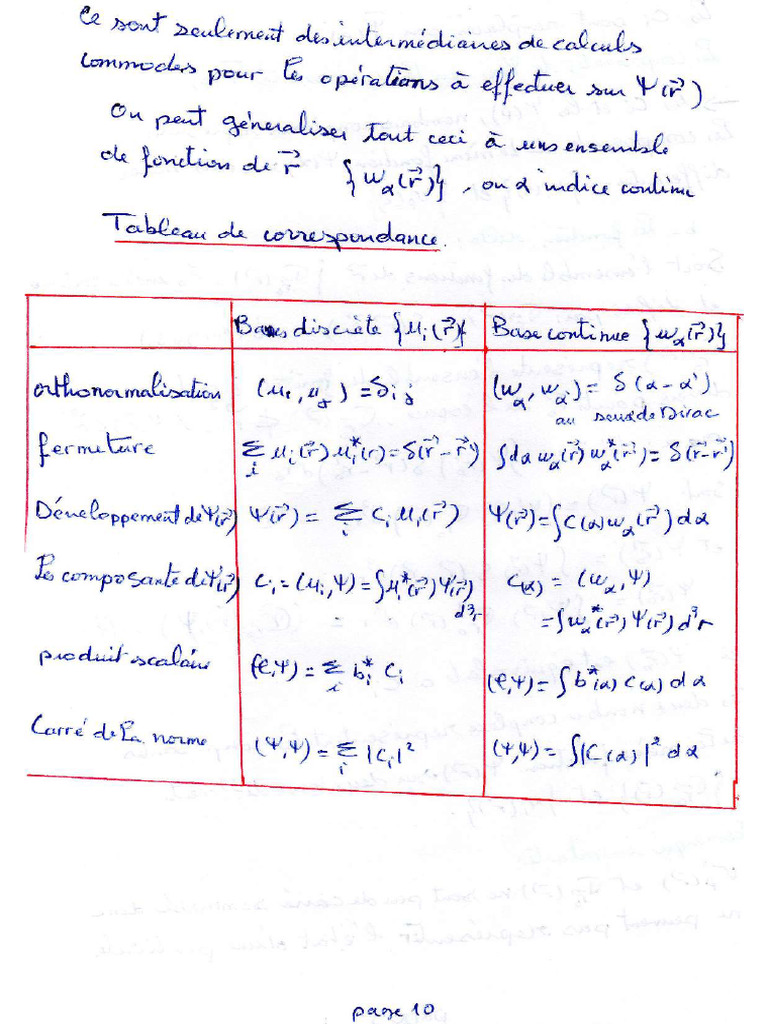 Ce sont seulement des intermédiaires de calculs
commodes pour les opérations à effectuer sur Ψ(r⃗)
On peut généraliser tout ceci à uns ensemble
de fonction de r⃗ {w_α(r⃗)}, ou α indice continu
Tableau de correspondance.
Bases discrète {u_i(r⃗)} Base continue {w_α(r⃗)}
orthonormalisation (u_i, u_j) = δ_ij (w_α, w_α') = δ(α-α')
au sens de Dirac
fermeture Σ_i u_i(r⃗) u_i*(r) = δ(r⃗-r⃗') ∫dα w_α(r⃗) w_α*(r⃗') = δ(r⃗-r⃗')
Développement de Ψ(r⃗) Ψ(r⃗) = Σ_i C_i u_i(r⃗) Ψ(r⃗) = ∫C(α) w_α(r⃗) dα
les composante de Ψ(r⃗) C_i = (u_i, Ψ) = ∫u_i*(r⃗) Ψ(r⃗) d³r C(α) = (w_α, Ψ)
= ∫w_α*(r⃗) Ψ(r⃗) d³r
produit scalaire (φ,Ψ) = Σ_i b_i* C_i (φ,Ψ) = ∫b*(α) C(α) dα
Carré de la norme (Ψ,Ψ) = Σ_i |C_i|² (Ψ,Ψ) = ∫|C(α)|² dα
page 10